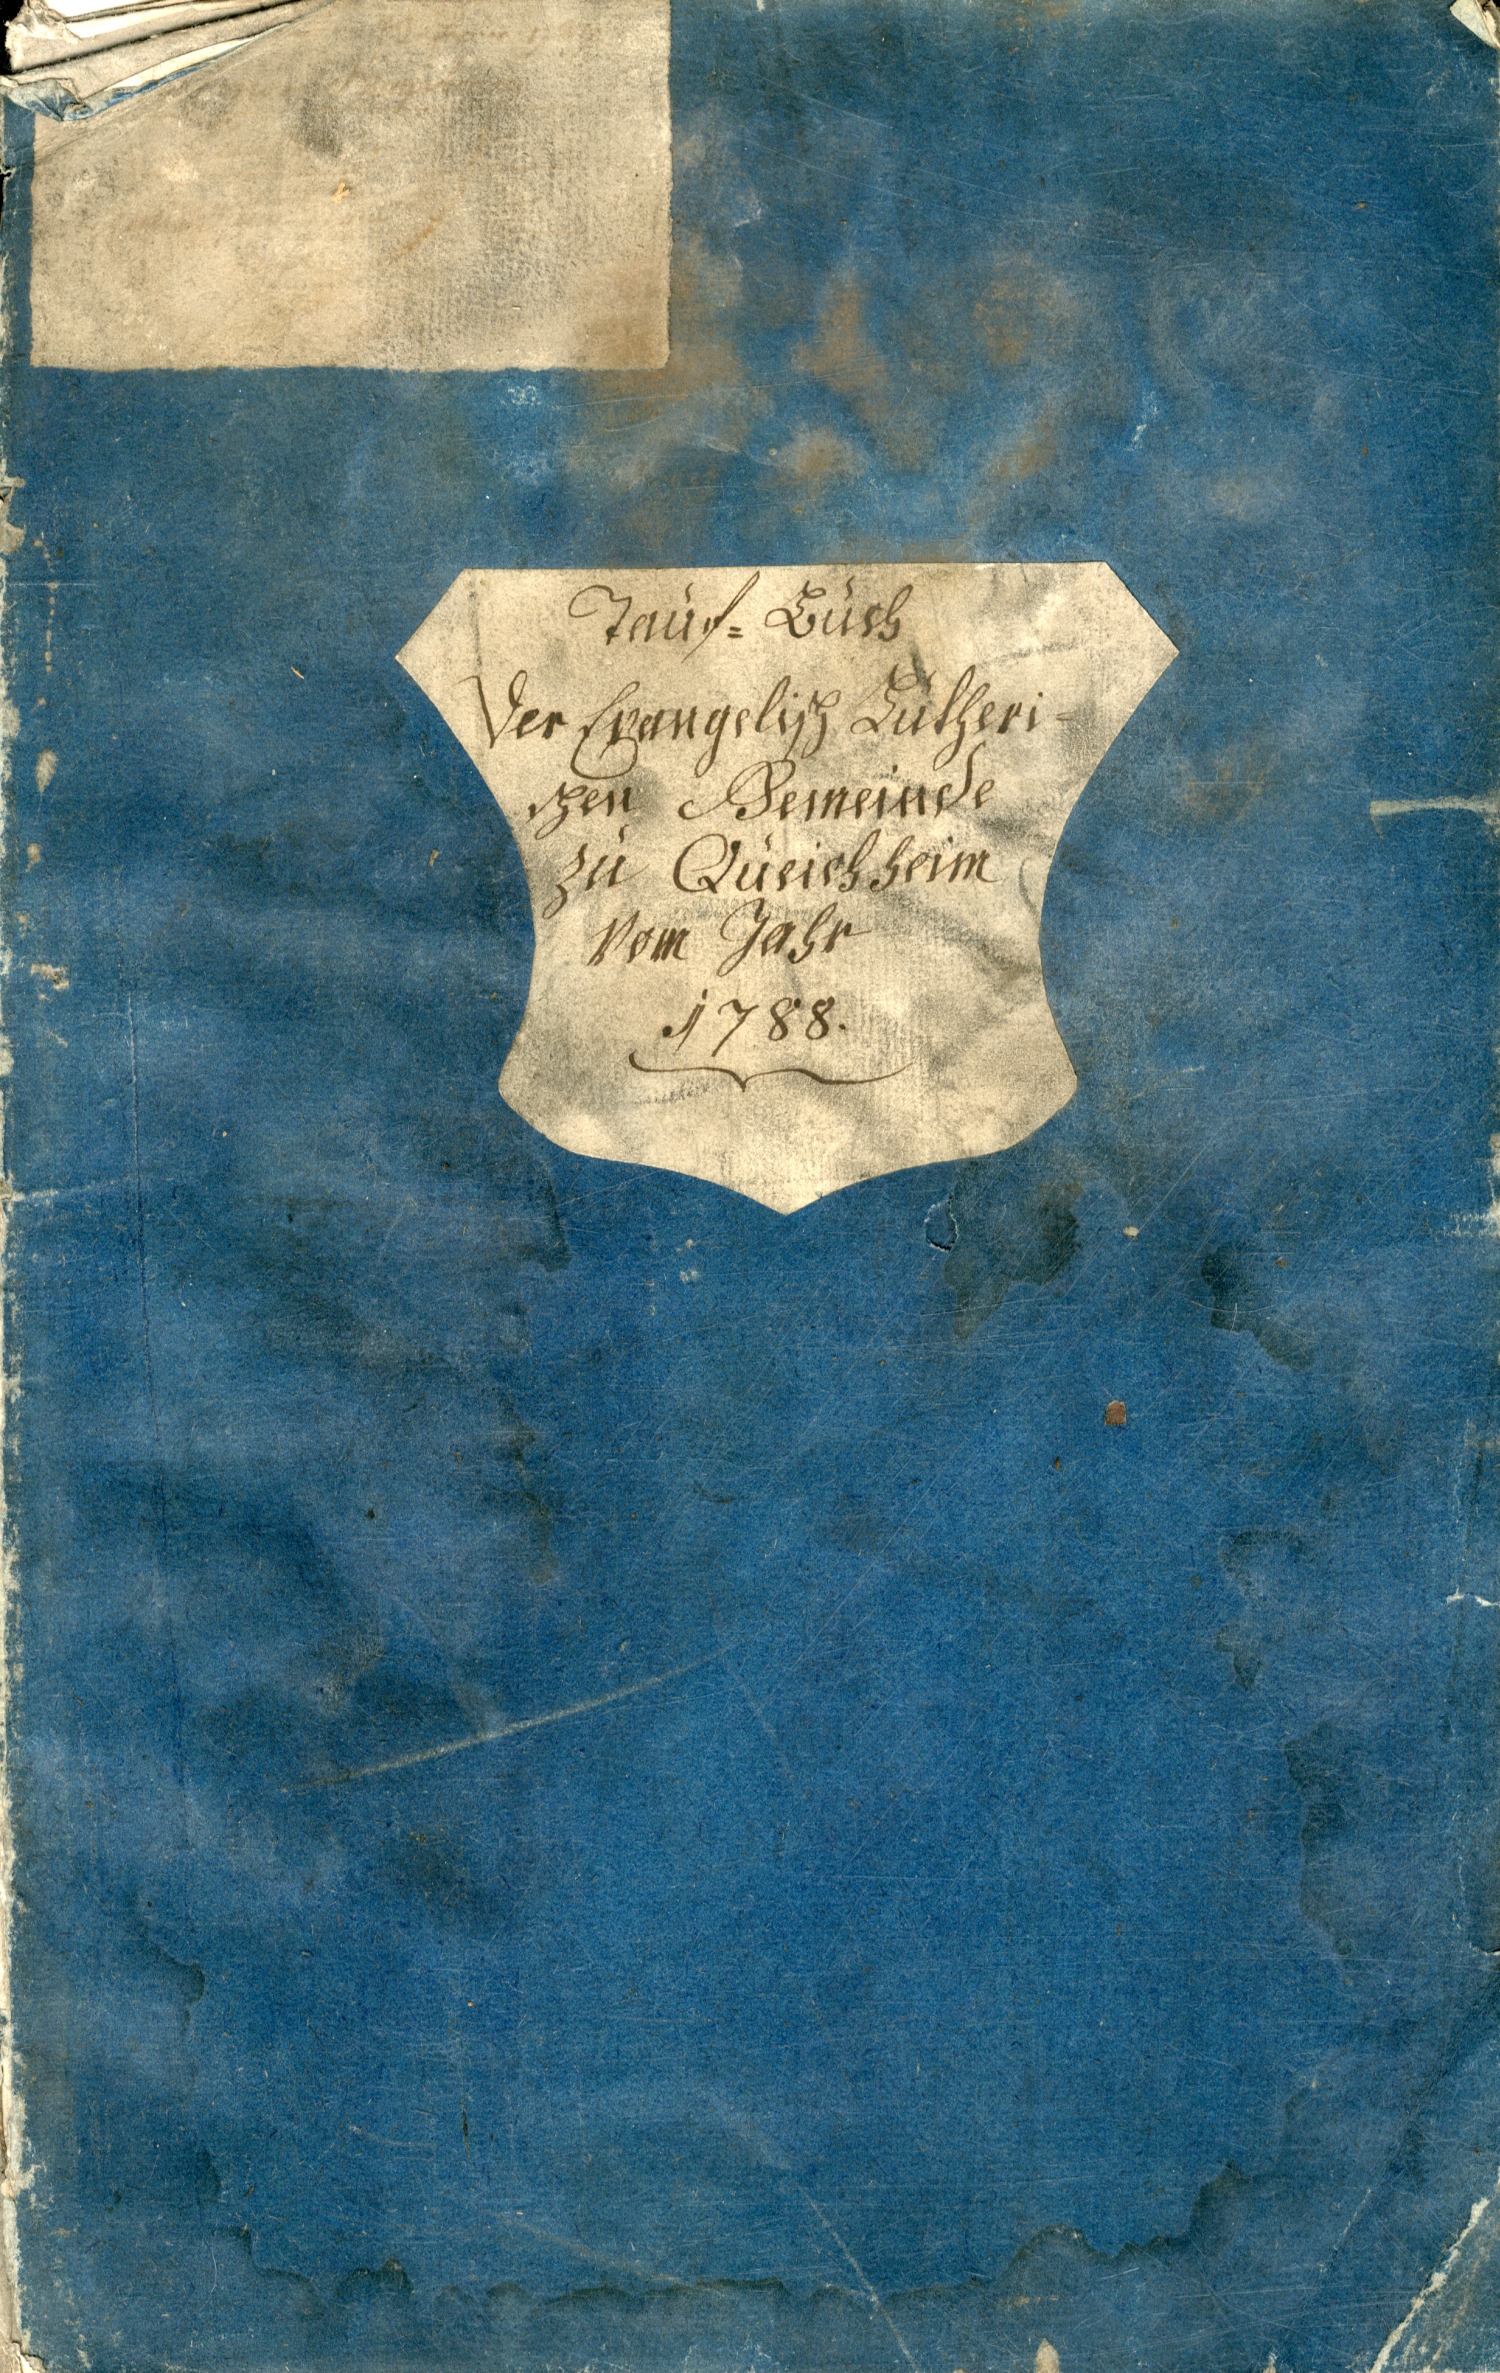 Tauf= Buch
Der Evangelisch Lutheri-
schen Gemeinde
zu Queichheim
Vom Jahr
1788.